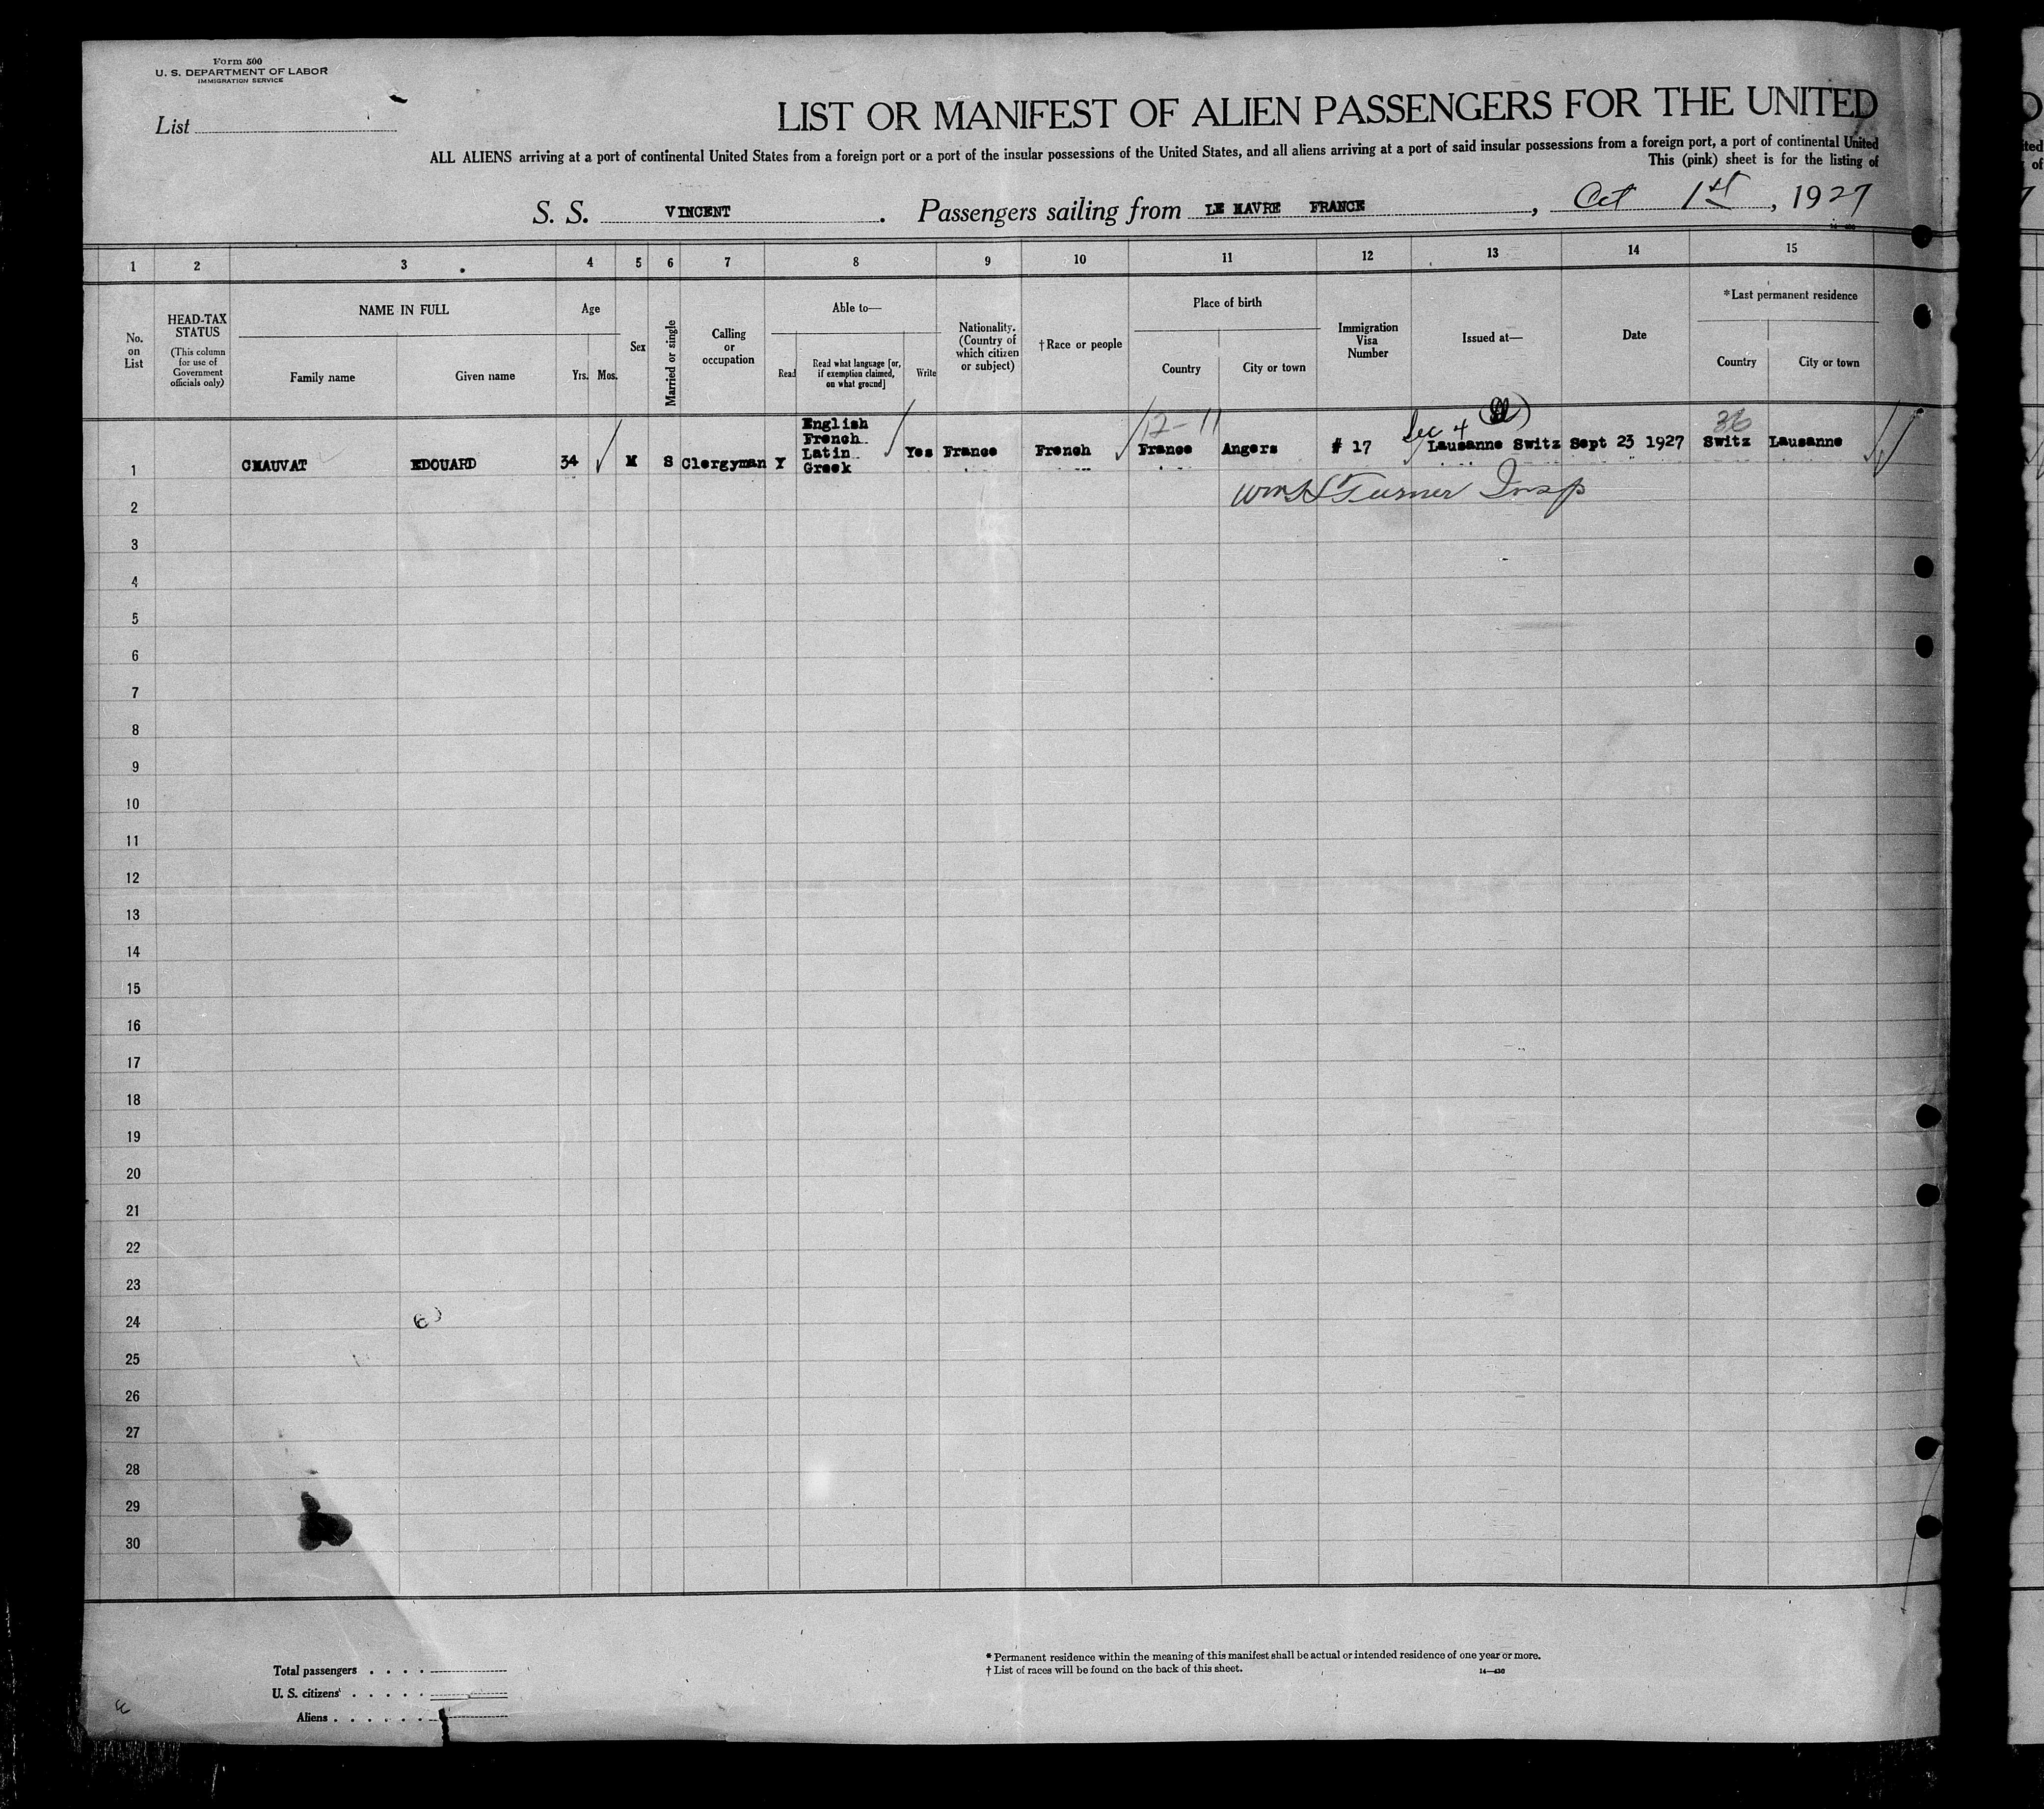 Form 500
U. S. DEPARTMENT OF LABOR
IMMIGRATION SERVICE
List
LIST OR MANIFEST OF ALIEN PASSENGERS FOR THE UNITED
ALL ALIENS arriving at a port of continental United States from a foreign port or a port of the insular possessions of the United States, and all aliens arriving at a port of said insular possessions from a foreign port, a port of continental United
This (pink) sheet is for the listing of
S. S. VINCENT. Passengers sailing from LE HAVRE FRANCE, Oct 1st, 1927
1 2 3 4 5 6 7 8 9 10 11 12 13 14 15
No. on List
HEAD-TAX STATUS
(This column for use of Government officials only)
NAME IN FULL
Family name
Given name
Age
Yrs. Mos.
Sex
Married or single
Calling or occupation
Able to—
Read
Read what language [or, if exemption claimed, on what ground]
Write
Nationality. (Country of which citizen or subject)
†Race or people
Place of birth
Country
City or town
Immigration Visa Number
Issued at—
Date
*Last permanent residence
Country
City or town
12-11
Sec 4
36
1 CHAUVAT EDOUARD 34 M S Clergyman Y English French Latin Greek Yes France French France Angers # 17 Lausanne Switz Sept 23 1927 Switz Lausanne
Wm H Turner Insp
2
3
4
5
6
7
8
9
10
11
12
13
14
15
16
17
18
19
20
21
22
23
24
25
26
27
28
29
30
Total passengers . . . .
U. S. citizens . . . . .
Aliens . . . . . .
* Permanent residence within the meaning of this manifest shall be actual or intended residence of one year or more.
† List of races will be found on the back of this sheet.
14—430